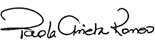 Paola Arrieta Romeo